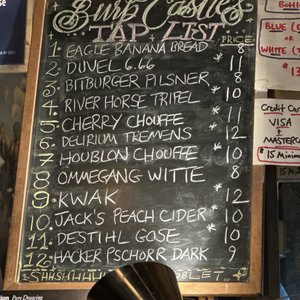 Burp Castle's
TAP LIST PRICE
1. EAGLE BANANA BREAD 8
2. DUVEL 6.66 * 11
3. BITBURGER PILSNER 8
4. RIVER HORSE TRIPEL * 10
5. CHERRY CHOUFFE * 11
6. DELIRIUM TREMENS * 12
7. HOUBLON CHOUFFE * 10
8. OMMEGANG WITTE 8
9. KWAK * 12
10. JACK'S PEACH CIDER * 10
11. DESTIHL GOSE * 10
12. HACKER PSCHORR DARK 9
BLUE (
OR
WHITE (
Credit Car
VISA
&
MASTERCA
$15 Minim